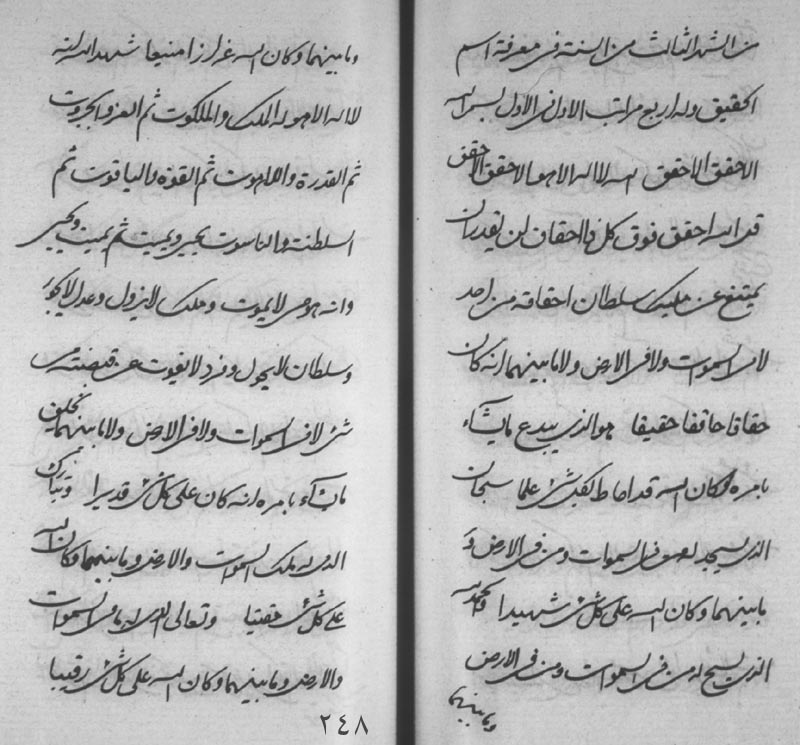 من الشهر الثالث من السنة فى معرفة اسم
الحقيق وله اربع مراتب الاول فى الاول بسم الله
الاحقق الاحقق الله لا اله الا هو الاحقق الاحقق
قل الله احقق فوق كل ذا احقاق لن يقدر ان
يمتنع عن مليك سلطان احقاقه من احد
لا فى السموات ولا فى الارض ولا ما بينهما انه كان
حقاقا حاققا حقيقا هو الذى يبدع ما يشآء
بامره وكان الله قد احاط بكل شئ علما سبحان
الذى يسجد له من فى السموات ومن فى الارض و
ما بينهما وكان الله على كل شئ شهيدا والحمد لله
الذى يسبح له من فى السموات ومن فى الارض
وما بينهما
وما بينهما وكان الله عزازا منيعا شهد الله انه
لا اله الا هو له الملك والملكوت ثم العز والجبروت
ثم القدرة واللاهوت ثم القوة والياقوت ثم
السلطنة والناسوت يحيى ويميت ثم يميت ويحيى
وانه هو حى لا يموت وملك لا يزول وعدل لا يجور
وسلطان لا يحول وفرد لا يفوت عن قبضته من
شئ لا فى السموات ولا فى الارض ولا ما بينهما يخلق
ما يشآء بامره انه كان على كل شئ قديرا وتبارك
الذى له ملك السموات والارض وما بينهما وكان الله
على كل شئ مقيتا وتعالى الذى له ما فى السموات
والارض وما بينهما وكان الله على كل شئ رقيبا
٢٤٨